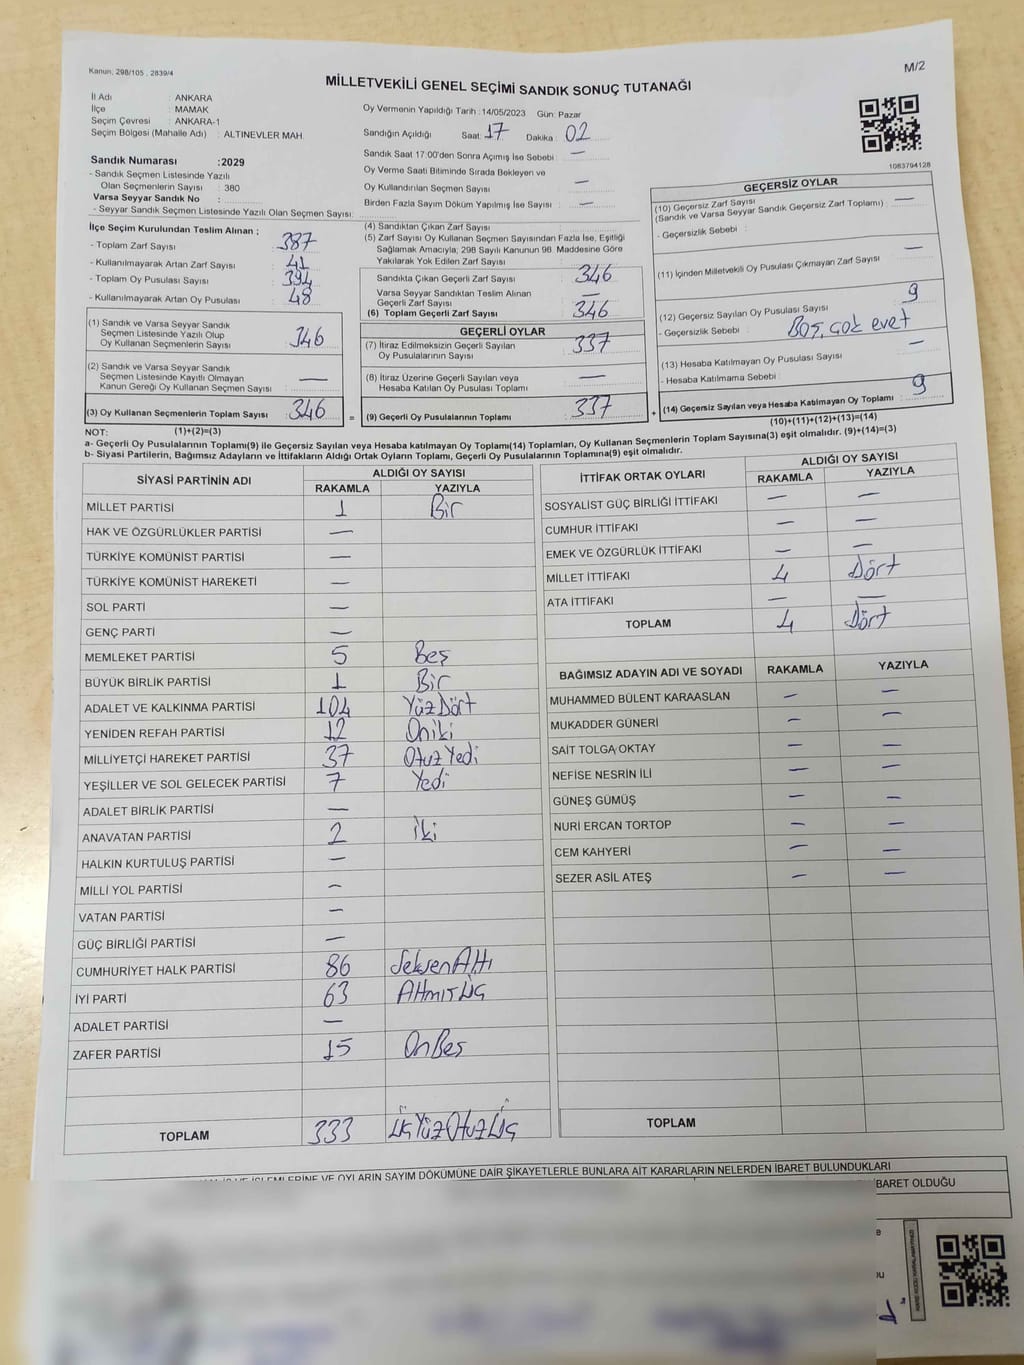 Kanun: 298/105 , 2839/4
MİLLETVEKİLİ GENEL SEÇİMİ SANDIK SONUÇ TUTANAĞI
M/2
İl Adı : ANKARA
İlçe : MAMAK
Seçim Çevresi : ANKARA-1
Seçim Bölgesi (Mahalle Adı) : ALTINEVLER MAH.
Oy Vermenin Yapıldığı Tarih : 14/05/2023 Gün: Pazar
Sandığın Açıldığı Saat: 17 Dakika : 02
Sandık Saat 17:00'den Sonra Açımış İse Sebebi : —
Oy Verme Saati Bitiminde Sırada Bekleyen ve
Oy Kullandırılan Seçmen Sayısı : —
Birden Fazla Sayım Döküm Yapılmış İse Sayısı : —
1083794128
Sandık Numarası :2029
- Sandık Seçmen Listesinde Yazılı
Olan Seçmenlerin Sayısı : 380
Varsa Seyyar Sandık No :
- Seyyar Sandık Seçmen Listesinde Yazılı Olan Seçmen Sayısı:
İlçe Seçim Kurulundan Teslim Alınan ;
- Toplam Zarf Sayısı : 387
- Kullanılmayarak Artan Zarf Sayısı : 41
- Toplam Oy Pusulası : 394
- Kullanılmayarak Artan Oy Pusulası : 48
(1) Sandık ve Varsa Seyyar Sandık
Seçmen Listesinde Yazılı Olup
Oy Kullanan Seçmenlerin Sayısı : 346
(2) Sandık ve Varsa Seyyar Sandık
Seçmen Listesinde Kayıtlı Olmayan
Kanun Gereği Oy Kullanan Seçmen Sayısı : —
(3) Oy Kullanan Seçmenlerin Toplam Sayısı : 346
(1)+(2)=(3)
(4) Sandıktan Çıkan Zarf Sayısı :
(5) Zarf Sayısı Oy Kullanan Seçmen Sayısından Fazla İse, Eşitliği
Sağlamak Amacıyla; 298 Sayılı Kanunun 98. Maddesine Göre
Yakılarak Yok Edilen Zarf Sayısı :
Sandıkta Çıkan Geçerli Zarf Sayısı : 346
Varsa Seyyar Sandıktan Teslim Alınan
Geçerli Zarf Sayısı : —
(6) Toplam Geçerli Zarf Sayısı : 346
GEÇERLİ OYLAR
(7) İtiraz Edilmeksizin Geçerli Sayılan
Oy Pusulalarının Sayısı : 337
(8) İtiraz Üzerine Geçerli Sayılan veya
Hesaba Katılan Oy Pusulası Toplamı : —
= (9) Geçerli Oy Pusulalarının Toplamı : 337
GEÇERSİZ OYLAR
(10) Geçersiz Zarf Sayısı : —
(Sandık ve Varsa Seyyar Sandık Geçersiz Zarf Toplamı)
- Geçersizlik Sebebi :
(11) İçinden Milletvekili Oy Pusulası Çıkmayan Zarf Sayısı : —
(12) Geçersiz Sayılan Oy Pusulası Sayısı : 9
- Geçersizlik Sebebi : Boş, çok evet
(13) Hesaba Katılmayan Oy Pusulası Sayısı : —
- Hesaba Katılmama Sebebi :
+ (14) Geçersiz Sayılan veya Hesaba Katılmayan Oy Toplamı : 9
(10)+(11)+(12)+(13)=(14)
NOT:
a- Geçerli Oy Pusulalarının Toplamı(9) ile Geçersiz Sayılan veya Hesaba katılmayan Oy Toplamı(14) Toplamları, Oy Kullanan Seçmenlerin Toplam Sayısına(3) eşit olmalıdır. (9)+(14)=(3)
b- Siyasi Partilerin, Bağımsız Adayların ve İttifakların Aldığı Ortak Oyların Toplamı, Geçerli Oy Pusulalarının Toplamına(9) eşit olmalıdır.
SİYASİ PARTİNİN ADI ALDIĞI OY SAYISI
RAKAMLA YAZIYLA
MİLLET PARTİSİ 1 Bir
HAK VE ÖZGÜRLÜKLER PARTİSİ —
TÜRKİYE KOMÜNİST PARTİSİ —
TÜRKİYE KOMÜNİST HAREKETİ —
SOL PARTİ —
GENÇ PARTİ —
MEMLEKET PARTİSİ 5 Beş
BÜYÜK BİRLİK PARTİSİ 1 Bir
ADALET VE KALKINMA PARTİSİ 104 YüzDört
YENİDEN REFAH PARTİSİ 12 Oniki
MİLLİYETÇİ HAREKET PARTİSİ 37 OtuzYedi
YEŞİLLER VE SOL GELECEK PARTİSİ 7 Yedi
ADALET BİRLİK PARTİSİ —
ANAVATAN PARTİSİ 2 İki
HALKIN KURTULUŞ PARTİSİ —
MİLLİ YOL PARTİSİ —
VATAN PARTİSİ —
GÜÇ BİRLİĞİ PARTİSİ —
CUMHURİYET HALK PARTİSİ 86 SeksenAltı
İYİ PARTİ 63 AltmışÜç
ADALET PARTİSİ —
ZAFER PARTİSİ 15 OnBeş
TOPLAM 333 ÜçYüzOtuzÜç
İTTİFAK ORTAK OYLARI ALDIĞI OY SAYISI
RAKAMLA YAZIYLA
SOSYALİST GÜÇ BİRLİĞİ İTTİFAKI — —
CUMHUR İTTİFAKI — —
EMEK VE ÖZGÜRLÜK İTTİFAKI — —
MİLLET İTTİFAKI 4 Dört
ATA İTTİFAKI — —
TOPLAM 4 Dört
BAĞIMSIZ ADAYIN ADI VE SOYADI RAKAMLA YAZIYLA
MUHAMMED BÜLENT KARAASLAN — —
MUKADDER GÜNERİ — —
SAİT TOLGA OKTAY — —
NEFİSE NESRİN İLİ — —
GÜNEŞ GÜMÜŞ — —
NURİ ERCAN TORTOP — —
CEM KAHYERİ — —
SEZER ASİL ATEŞ — —
TOPLAM
İŞLEMLERİNE VE OYLARIN SAYIM DÖKÜMÜNE DAİR ŞİKAYETLERLE BUNLARA AİT KARARLARIN NELERDEN İBARET BULUNDUKLARI
İBARET OLDUĞU